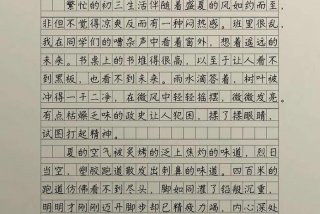 繁忙的初三生涯伴随着盛夏的风如约而至，
非但不觉得凉爽反而有一种闷热感。班里很乱，
我在同学们的嘈杂声中看着窗外，想着遥远的
未来。书桌上的书堆得很高，以至于让人看不
到黑板，也看不到未来。雨水滴答着，树叶被
冲得一干二净，在微风中轻轻摇摆，微微发亮。
有点枯燥乏味的政史让人犯困，揉了揉眼睛，
试图打起精神。
夏的空气被炙烤的泛上焦灼的味道，烈日
当空，塑胶跑道散发出刺鼻的味道。四百米的
跑道仿佛看不到尽头，脚如同灌了铅般沉重，
明明才刚刚迈开脚步却已精疲力竭，内心达